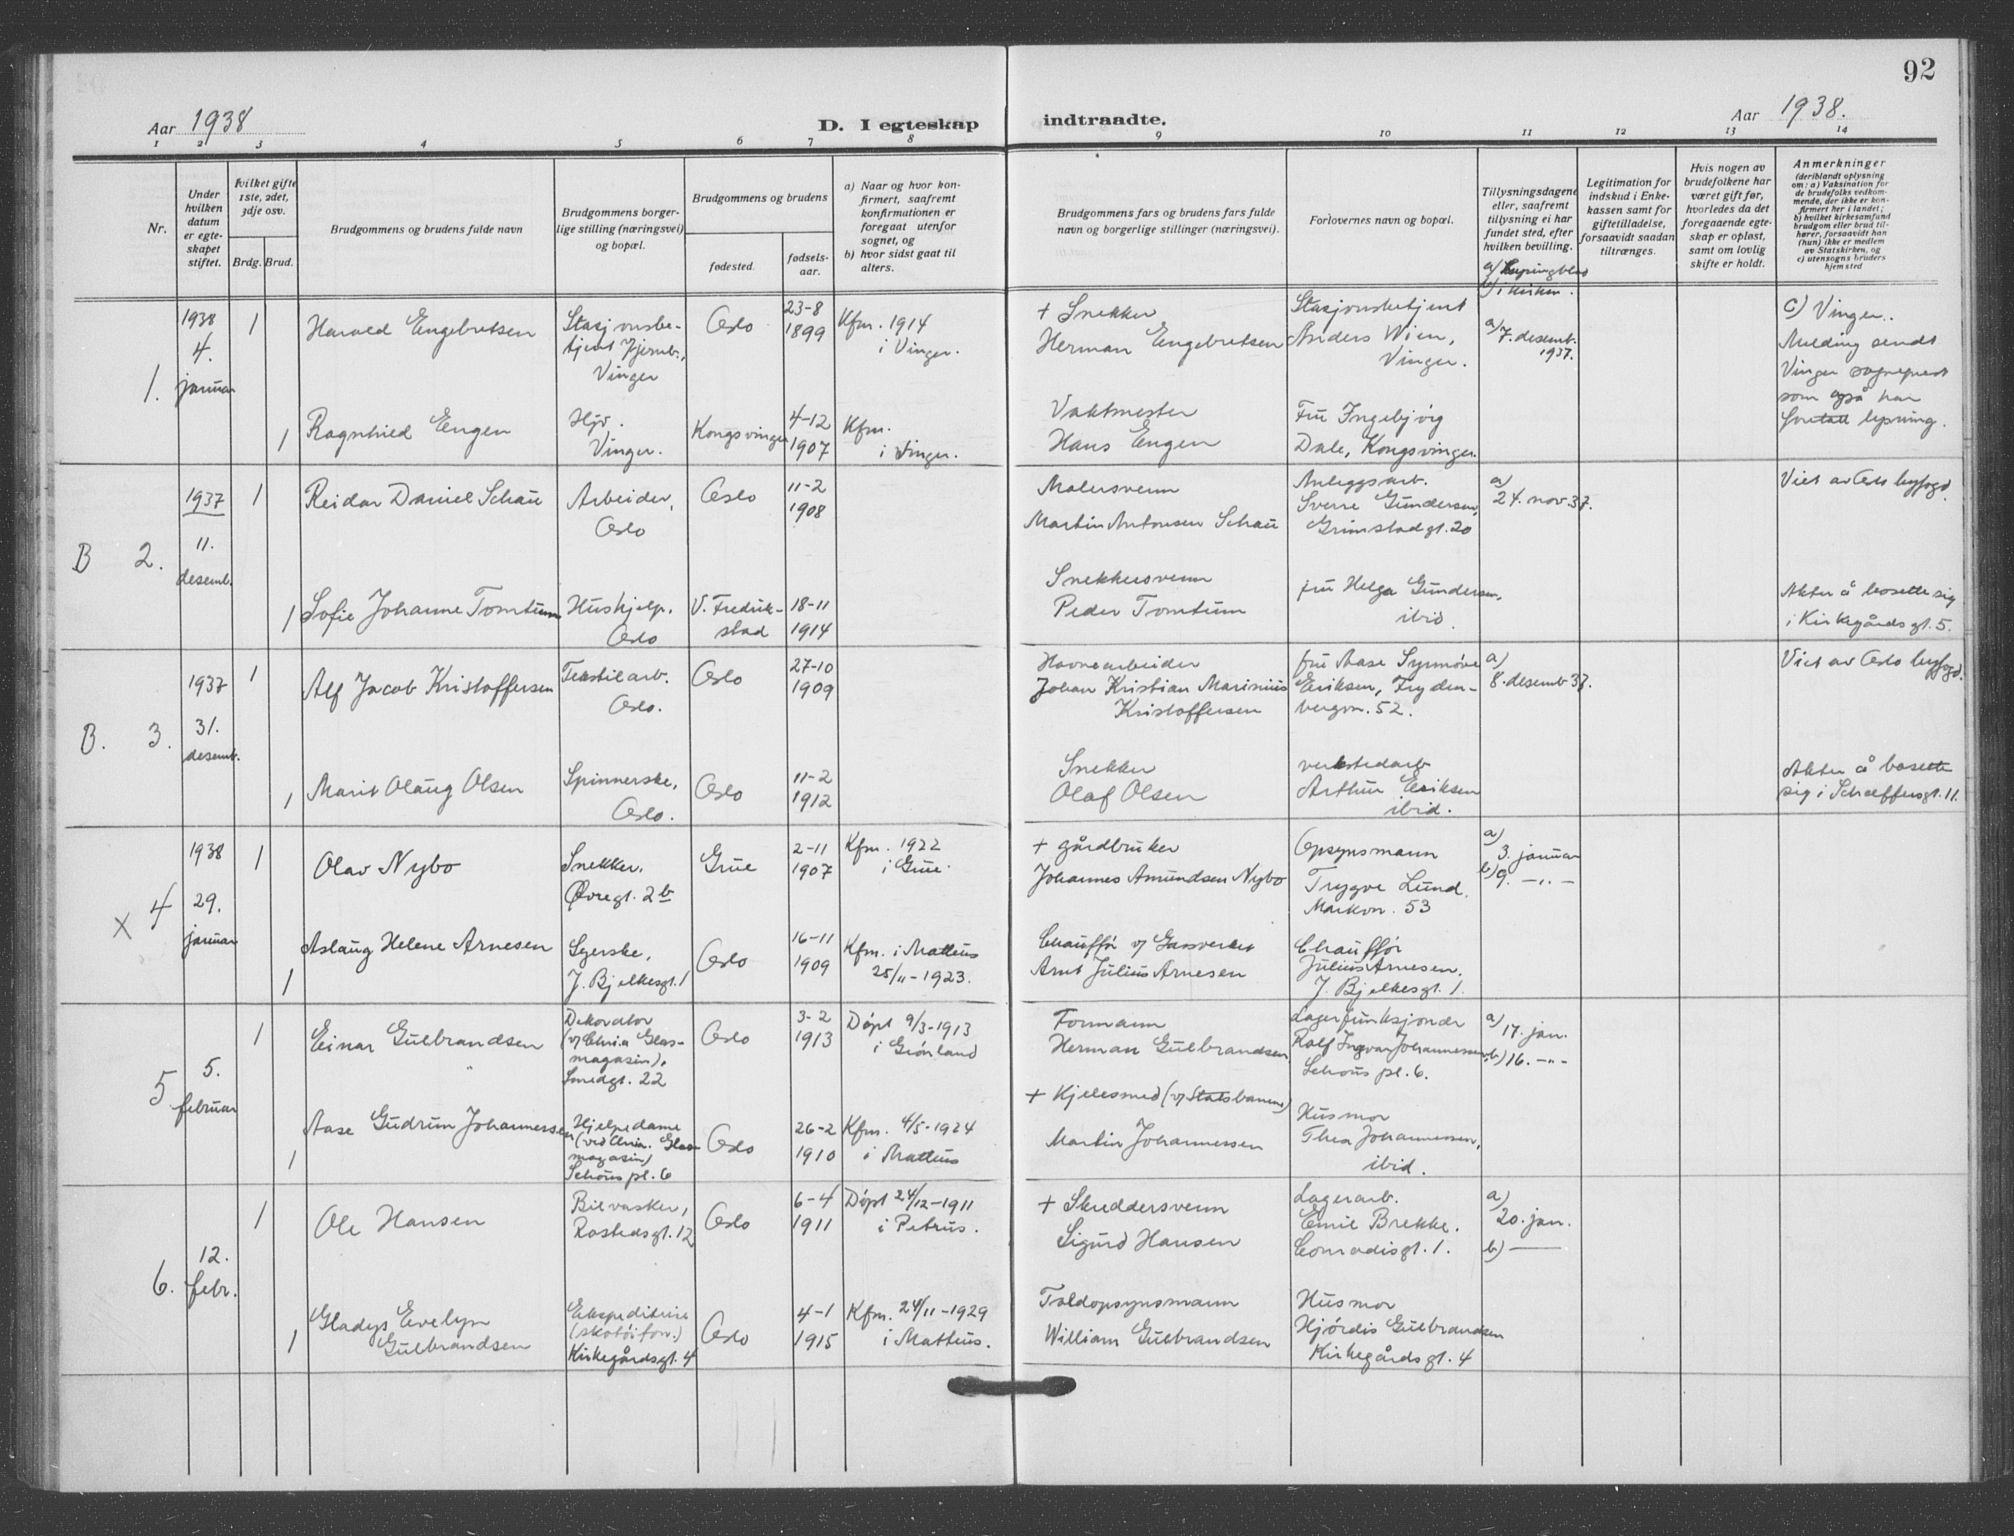 92
Aar 1938
D. I egteskap
indtraadte.
Aar 1938.
1 2 3 4 5 6 7 8 9 10 11 12 13 14
Nr.
Under hvilken datum er egteskapet stiftet.
Hvilket gifte 1ste, 2det, 3dje osv.
Brdg. Brud.
Brudgommens og brudens fulde navn
Brudgommens borgerlige stilling (næringsvei) og bopæl.
Brudgommens og brudens
fødested.
fødselsaar.
a) Naar og hvor konfirmert, saafremt konfirmationen er foregaat utenfor sognet, og
b) hvor sidst gaat til alters.
Brudgommens fars og brudens fars fulde navn og borgerlige stillinger (næringsvei).
Forlovernes navn og bopæl.
Tillysningsdagene eller, saafremt tillysning ei har fundet sted, efter hvilken bevilling.
a) Lysingblad
b) i kirken.
Legitimation for indskud i Enkekassen samt for giftetilladelse, forsaavidt saadan tiltrænges.
Hvis nogen av brudefolkene har været gift før, hvorledes da det foregaaende egteskap er opløst, samt om lovlig skifte er holdt.
Anmerkninger
(deriblandt oplysning om: a) Vaksination for de brudefolks vedkommende, der ikke er konfirmert her i landet; b) hvilket kirkesamfund brudgom eller brud tilhører, forsaavidt han (hun) ikke er medlem av Statskirken, og c) utensogns bruders hjemsted
1.
1938
4.
januar
1
Harald Engebretsen
Stasjonsbe-
tjent Jernb.,
Vinger
Oslo
23-8
1899
Kfm. 1914
i Vinger.
+ Snekker
Herman Engebretsen
Stasjonsbetjent
Anders Wien,
Vinger.
a) 7. desemb.
1937.
c) Vinger.
Melding sendt
Vinger sogneprest
som også har
foretatt lysning.
1
Ragnhild Engen
Hjv.
Vinger.
Kongsvinger
4-12
1907
Kfm.
i Vinger.
Vaktmester
Hans Engen
Fru Ingebjørg
Dale, Kongsvinger.
B 2.
1937
11.
desemb.
1
Reidar Daniel Schau
Arbeider,
Oslo
Oslo
11-2
1908
Malersvenn
Martin Antonsen Schau
Anleggsarb.
Sverre Gundersen,
Grimstadgt. 20
a)
24. nov. 37.
Viet av Oslo byfogd.
1
Sofie Johanne Tomtum
Hushjelp.
Oslo
V. Fredrik-
stad
18-11
1914
Snekkersvenn
Peder Tomtum
fru Helga Gundersen,
ibid.
Akter å bosette sig
i Kirkegårdsgt. 5.
B. 3.
1937
31.
desemb.
1
Alf Jacob Kristoffersen
Tekstilarb.
Oslo.
Oslo
27-10
1909
Havnearbeider
Johan Kristian Marinius
Kristoffersen
fru Aase Synnøve
Eriksen, Fryden-
bergvn. 52.
a)
8. desemb 37.
Viet av Oslo byfogd.
1
Marit Olaug Olsen
Spinnerske,
Oslo.
Oslo
11-2
1912
Snekker
Olaf Olsen
verkstedarb
Arthur Eriksen
ibid.
Akter å bosette
sig i Schæffersgt. 11.
x 4
1938
29.
januar
1
Olav Nybo
Snekker.
Øvregt. 2b
Grue
2-11
1907
Kfm. 1922
i Grue.
+ gårdbruker
Johannes Amundsen Nybo
Opsynsmann
Trygve Lund.
Markvn. 53
a) 3. januar
b) 9. -"-
1
Aslaug Helene Arnesen
Syerske,
J. Bjelkesgt. 1
Oslo
16-11
1909
Kfm. i Matteus
25/11-1923.
Chauffør v/ Gassverket
Arnt Julius Arnesen
Chauffør
Julius Arnesen.
J. Bjelkesgt. 1.
5
5.
februar
1
Einar Gulbrandsen
Dekoratør
(v/Chria Glas-
magasin),
Smedgt. 22
Oslo
3-2
1913
Døpt 9/3-1913
i Grønland
Formann
Herman Gulbrandsen
Lagerfunksjonær
Rolf Ingvar Johannessen,
Schous pl. 6.
a) 17. jan.
b) 16. -"-
1
Aase Gudrun Johannessen
Hjelpedame
(ved Chria. Glas-
magasin)
Schous pl. 6
Oslo
26-2
1910
Kfm. 4/5-1924
i Matteus
+ Kjelesmed (v/ Statsbanene)
Martin Johannessen
Husmor
Thea Johannessen,
ibid.
6.
12.
febr.
1
Ole Hansen
Bilvasker,
Rostedsgt. 12
Oslo
6-4
1911
Døpt 24/12-1911
i Petrus.
+ Skreddersvenn
Sigurd Hansen
Lagerarb.
Emil Brekke.
Conradisgt. 1.
a)
20. jan.
b) —
1
Gladys Evelyn
Gulbrandsen
Ekspeditrise
(skotøiforr.)
Kirkegårdsgt. 4
Oslo
4-1
1915
Kfm. 24/11-1929
i Matteus.
Tollopsynsmann
William Gulbrandsen
Husmor
Hjørdis Gulbrandsen
Kirkegårdsgt. 4